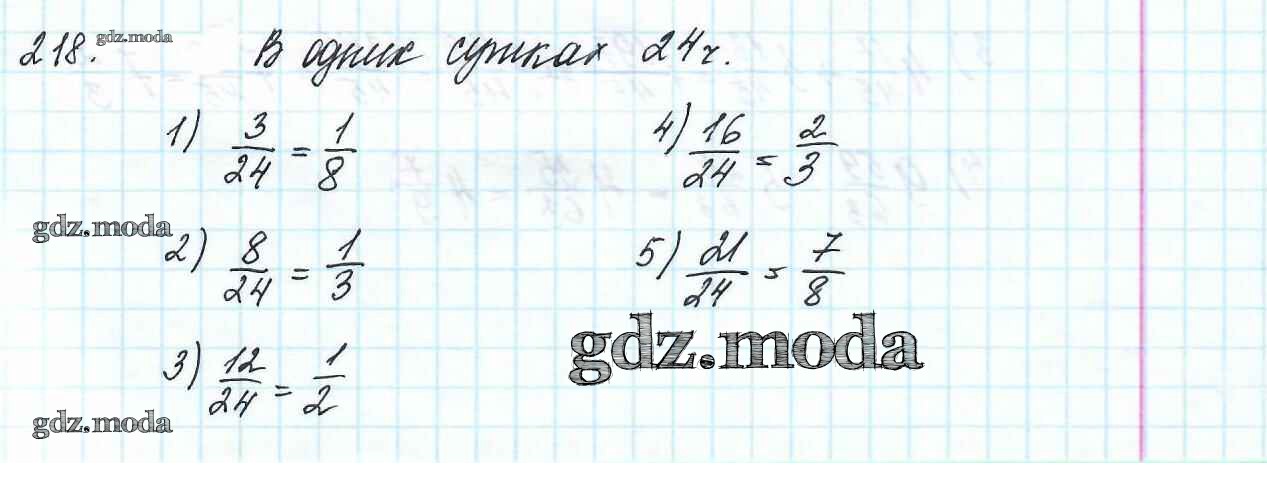 218. gdz.moda В одних сутках 24 ч.
1) 3/24 = 1/8
4) 16/24 = 2/3
gdz.moda
2) 8/24 = 1/3
5) 21/24 = 7/8
gdz.moda
3) 12/24 = 1/2
gdz.moda